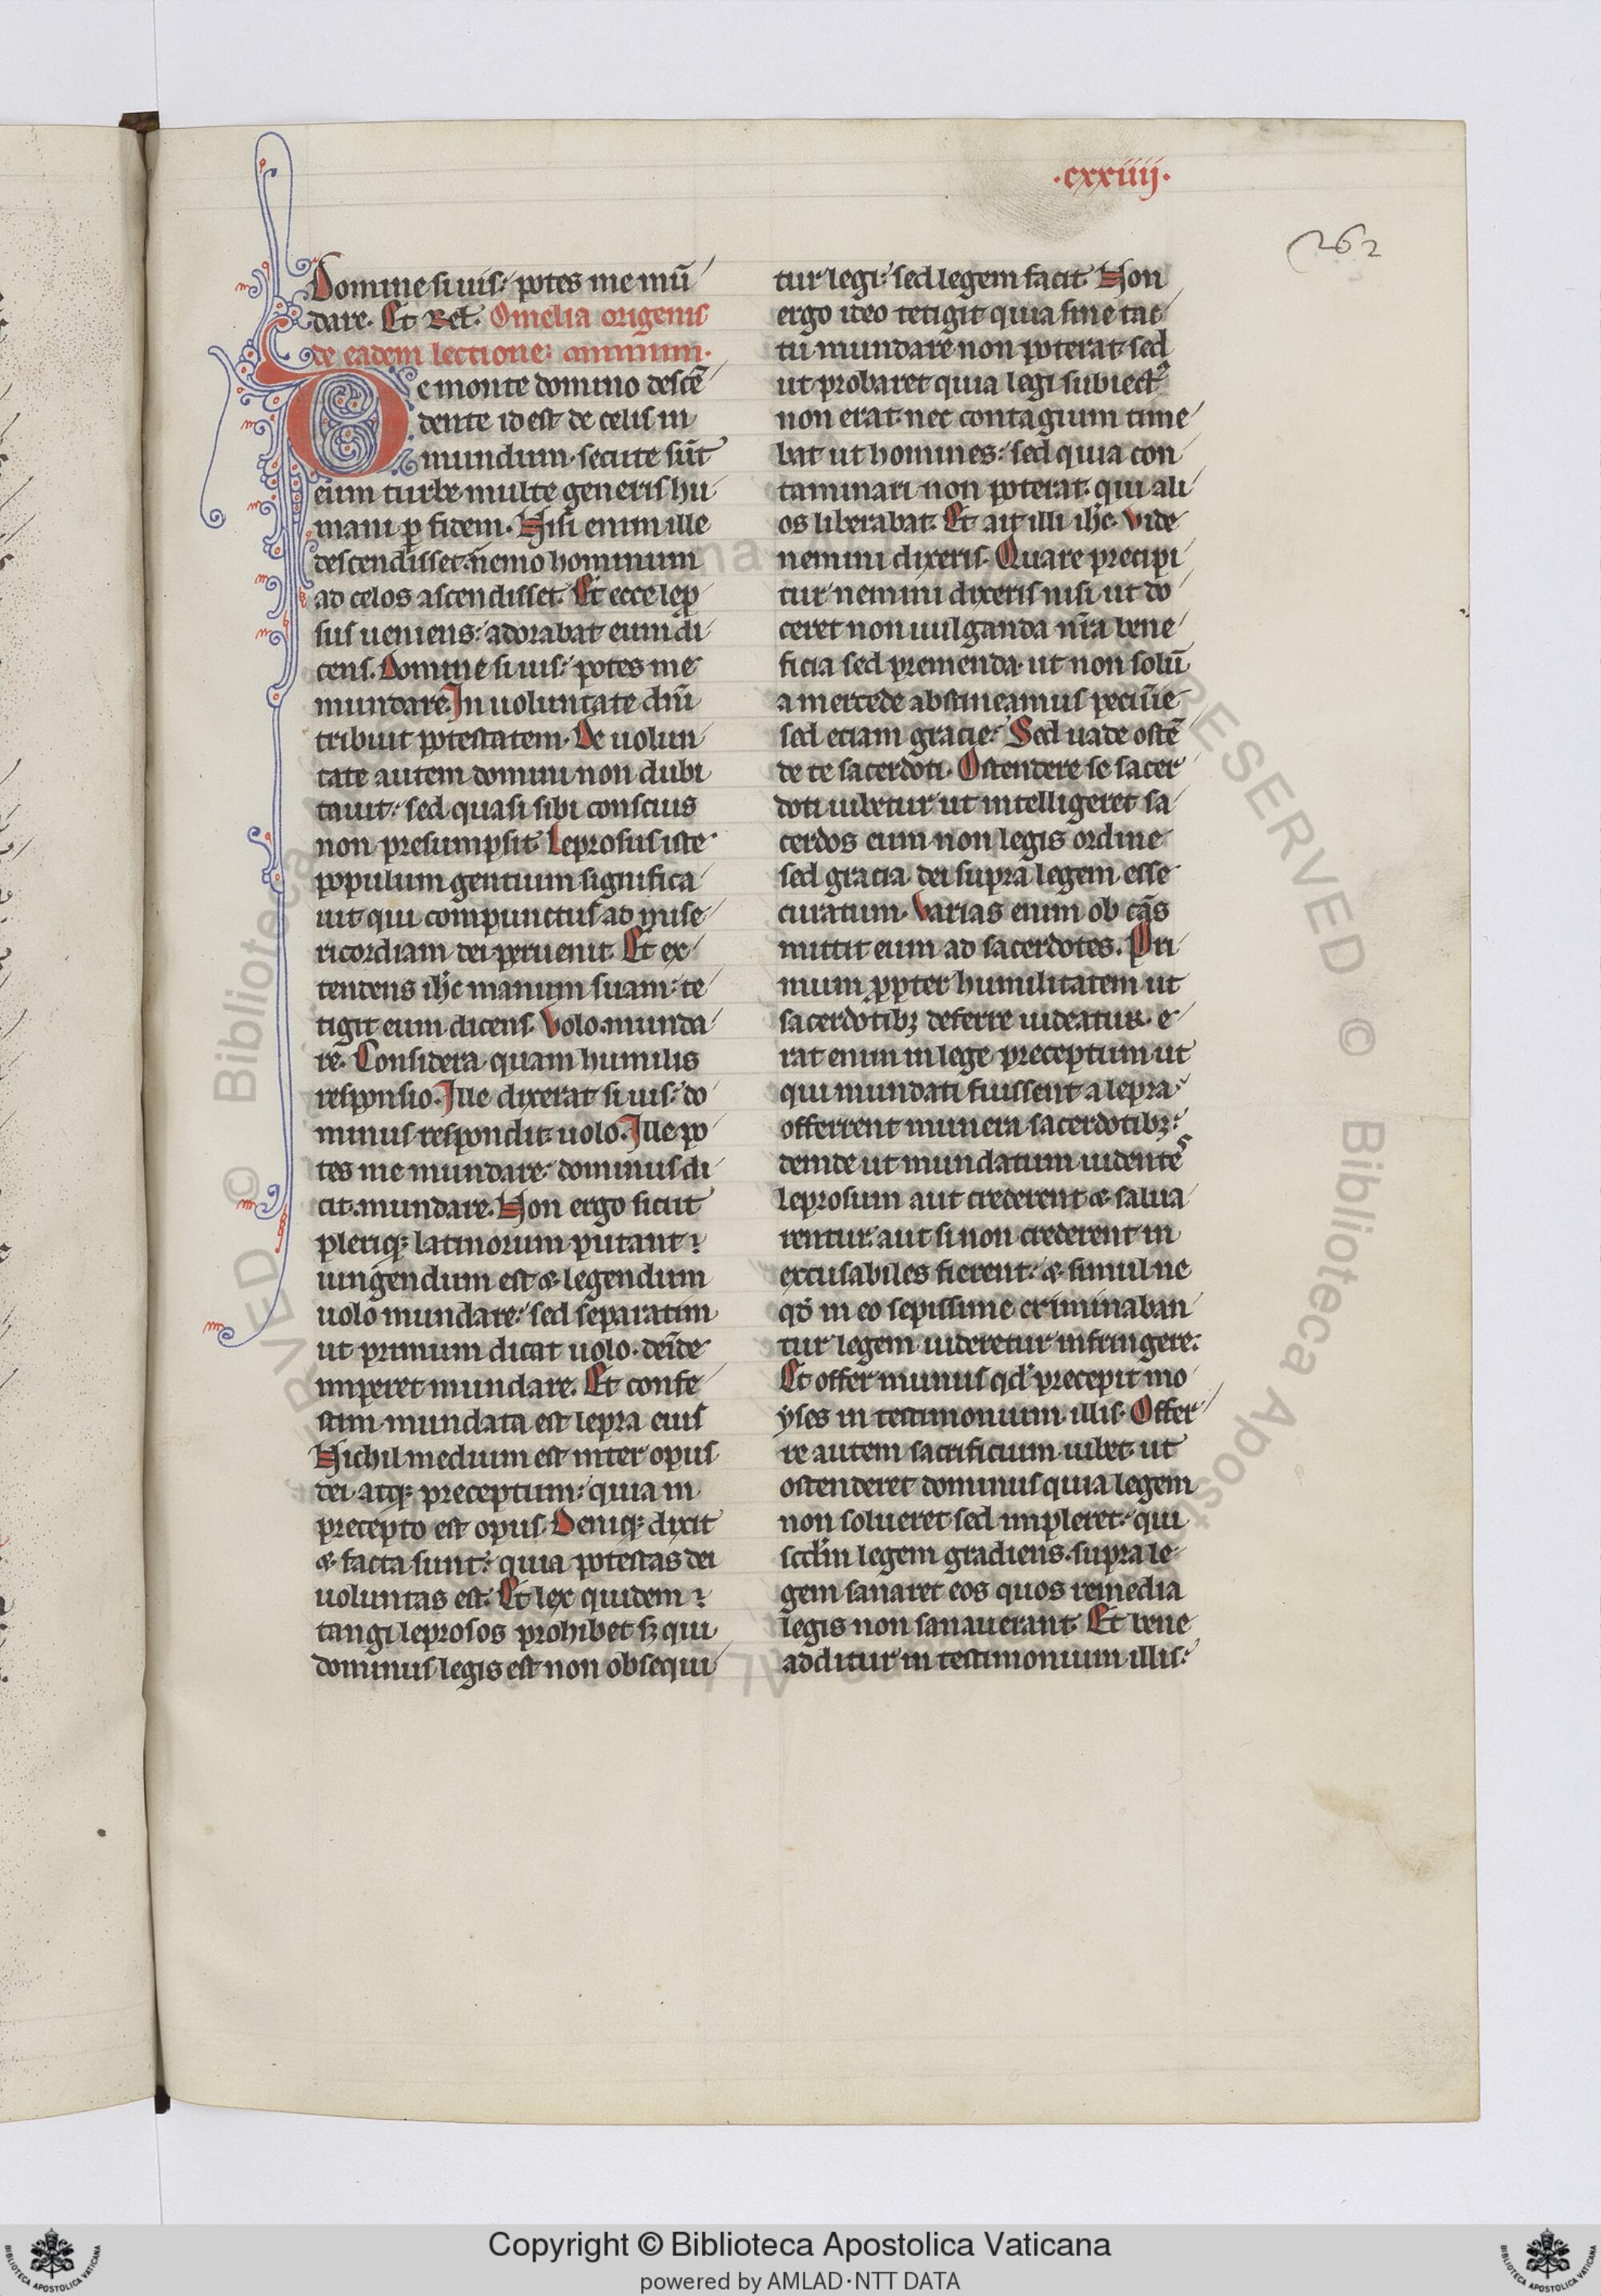 .cxxiiij.
262
Domine si uis: potes me mū
dare. Et Rel. Omelia origenis
de eadem lectione:
De monte domino descē
dente id est de celis in
mundum. secute sūt
eum turbe multe generis hu
mani ꝑ fidem. Nisi enim ille
descendisset. nemo hominum
ad celos ascendisset. Et ecce lep
sus ueniens: adorabat eum di
cens. Domine si uis: potes me
mundare. In uoluntate dn̄i
tribuit potestatem. De uolun
tate autem domini non dubi
tauit: sed quasi sibi conscius
non presumpsit. Leprosus iste
populum gentium significa
uit qui compunctus ad mise
ricordiam dei peruenit. Et ex
tendens ih̄c manum suam: te
tigit eum dicens. Volo munda
re. Considera quam humilis
responsio. Ille dixerat si uis: do
minus respondit uolo. Ille po
tes me mundare. dominus di
cit. mundare. Non ergo sicut
pleriqꝫ latinorum putant:
iungendum est ⁊ legendum
uolo mundare: sed separatim
ut primum dicat uolo. deīde
imperet mundare. Et confe
stim mundata est lepra eius
Nichil medium est inter opus
dei atqꝫ preceptum: quia in
precepto est opus. Deniqꝫ dixit
⁊ facta sunt: quia potestas dei
uoluntas est. Et lex quidem:
tangi leprosos prohibet sꝫ qui
dominus legis est non obsequi
tur legi: sed legem facit. Non
ergo ideo tetigit quia sine tac
tu mundare non poterat. sed
ut probaret quia legi subiectꝰ
non erat. nec contagium time
bat ut homines: sed quia con
taminari non poterat. qui ali
os liberabat. Et ait illi ih̄c. Vide
nemini dixeris. Quare precipi
tur nemini dixeris nisi ut do
ceret non uulganda nr̄a bene
ficia sed premenda. ut non solū
a mercede abstineamus pecūie
sed etiam gracie: Sed uade ostē
de te sacerdoti. Ostendere se sacer
doti iubetur ut intelligeret sa
cerdos eum non legis ordine
sed gracia dei supra legem esse
curatum. Varias enim ob cās
mittit eum ad sacerdotes. Pri
mum ꝓpter humilitatem ut
sacerdotibꝫ deferre uideatur. e
rat enim in lege preceptum ut
qui mundati fuissent a lepra:
offerrent munera sacerdotibꝫ:
deinde ut mundatum uidentes
leprosum aut crederent ⁊ salua
rentur. aut si non crederent in
excusabiles fierent: ⁊ simul ne
qd̄ in eo sepissime criminaban
tur legem uideretur infringere:
Et offer munus qd̄ precepit mo
yses in testimonium illis. Offer
re autem sacrificium iubet. ut
ostenderet dominus quia legem
non solueret sed impleret. qui
scd̄m legem gradiens. supra le
gem sanaret eos quos remedia
legis non sanauerant. Et bene
additur in testimonium illis:
Copyright © Biblioteca Apostolica Vaticana
powered by AMLAD·NTT DATA